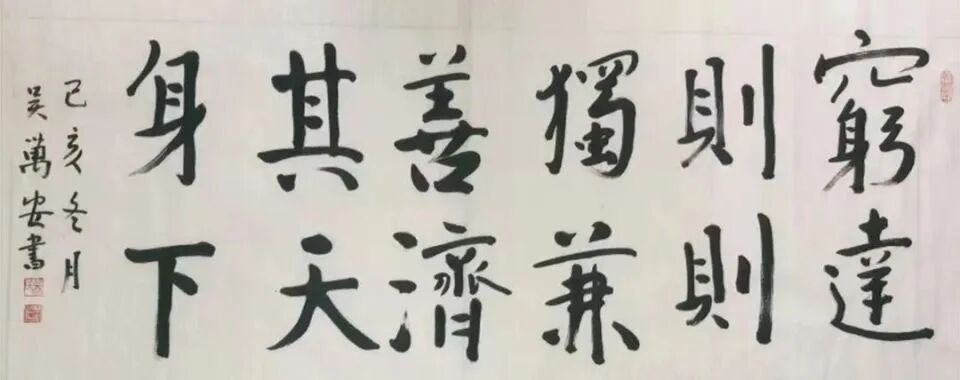 窮則獨善其身
達則兼濟天下
己亥冬月
吳萬安書